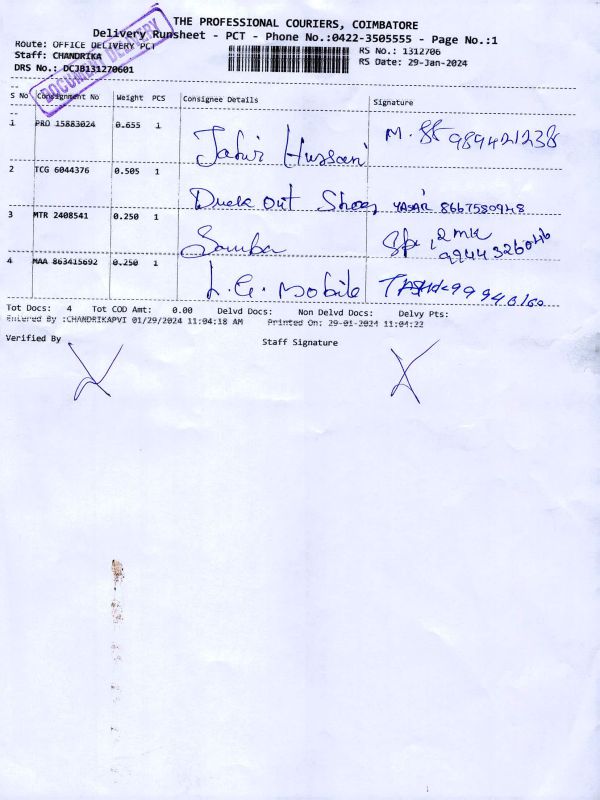 THE PROFESSIONAL COURIERS, COIMBATORE
Delivery Runsheet - PCT - Phone No.:0422-3505555 - Page No.:1
Route: OFFICE DELIVERY PCT
RS No.: 1312706
Staff: CHANDRIKA
RS Date: 29-Jan-2024
DRS No.: DCJB131270601
DOCUMENT DELIVERY
S No Consignment No Weight PCS Consignee Details Signature
1 PRO 15883024 0.655 1
Hussain M.
2 TCG 6044376 0.505 1
Duck out Shoes YASAR 8667580948
3 MTR 2408541 0.250 1
Samba 9944432604b
4 MAA 863415692 0.250 1
L.G. mobile
Tot Docs: 4 Tot COD Amt: 0.00 Delvd Docs: Non Delvd Docs: Delvy Pts:
Entered By :CHANDRIKAPVI 01/29/2024 11:04:18 AM Printed On: 29-01-2024 11:04:22
Verified By Staff Signature